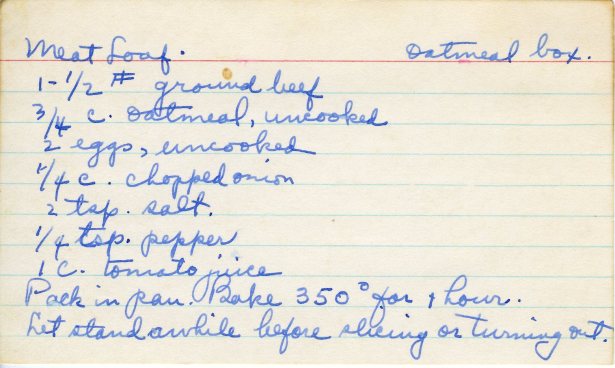 Meat Loaf. Oatmeal box.
1-1/2 # ground beef
3/4 c. oatmeal, uncooked
2 eggs, uncooked
1/4 c. chopped onion
2 tsp. salt.
1/4 tsp. pepper
1 c. tomato juice
Pack in pan. Bake 350° for 1 hour.
Let stand awhile before slicing or turning out.